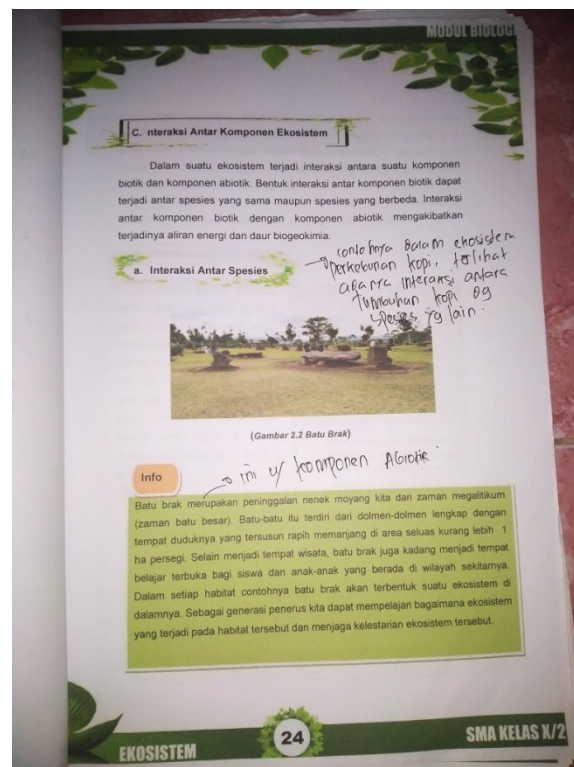 MODUL BIOLOGI
C. nteraksi Antar Komponen Ekosistem
Dalam suatu ekosistem terjadi interaksi antara suatu komponen
biotik dan komponen abiotik. Bentuk interaksi antar komponen biotik dapat
terjadi antar spesies yang sama maupun spesies yang berbeda. Interaksi
antar komponen biotik dengan komponen abiotik mengakibatkan
terjadinya aliran energi dan daur biogeokimia.
a. Interaksi Antar Spesies
contohnya dalam ekosistem
perkebunan kopi, terlihat
adanya interaksi antara
tumbuhan kopi dg
spesies yg lain.
(Gambar 2.2 Batu Brak)
Info
ini u/ komponen Abiotik.
Batu brak merupakan peninggalan nenek moyang kita dari zaman megalitikum
(zaman batu besar). Batu-batu itu terdiri dari dolmen-dolmen lengkap dengan
tempat duduknya yang tersusun rapih memanjang di area seluas kurang lebih 1
ha persegi. Selain menjadi tempat wisata, batu brak juga kadang menjadi tempat
belajar terbuka bagi siswa dan anak-anak yang berada di wilayah sekitarnya.
Dalam setiap habitat contohnya batu brak akan terbentuk suatu ekosistem di
dalamnya. Sebagai generasi penerus kita dapat mempelajari bagaimana ekosistem
yang terjadi pada habitat tersebut dan menjaga kelestarian ekosistem tersebut.
EKOSISTEM
24
SMA KELAS X/2